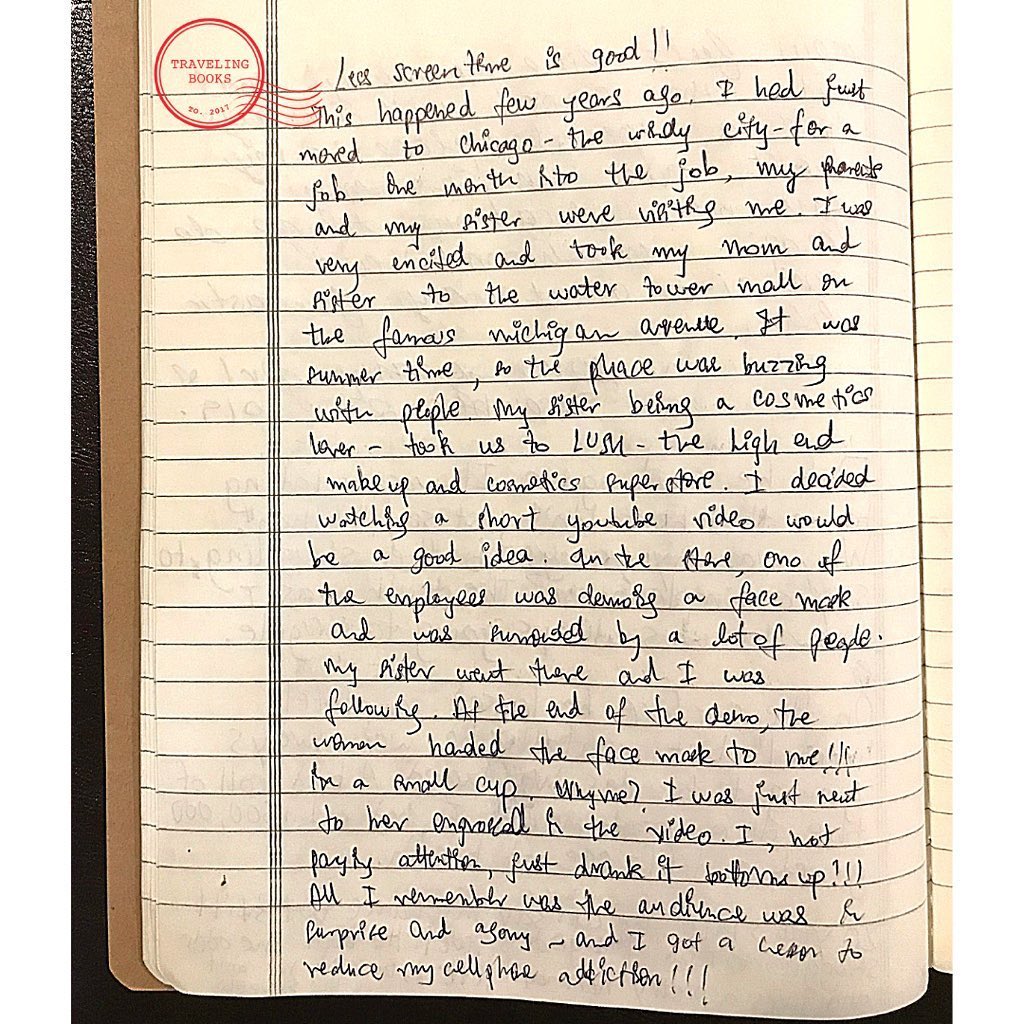 TRAVELING
BOOKS
TO. 2017
Less screen time is good!!
This happened few years ago. I had just
moved to Chicago - the windy city - for a
job. One month into the job, my parents
and my sister were visiting me. I was
very excited and took my mom and
sister to the water tower mall on
the famous michigan avenue. It was
summer time, so the place was buzzing
with people. My sister being a cosmetics
lover - took us to LUSH - the high end
makeup and cosmetics superstore. I decided
watching a short youtube video would
be a good idea. In the store, one of
the employees was demoing a face mask
and was surrounded by a lot of people.
my sister went there and I was
following. At the end of the demo, the
woman handed the face mask to me!!!
in a small cup. Why me? I was just next
to her engrossed in the video. I, not
paying attention, just drank it bottoms up!!!
All I remember was the audience was in
surprise and agony - and I got a lesson to
reduce my cellphone addiction!!!